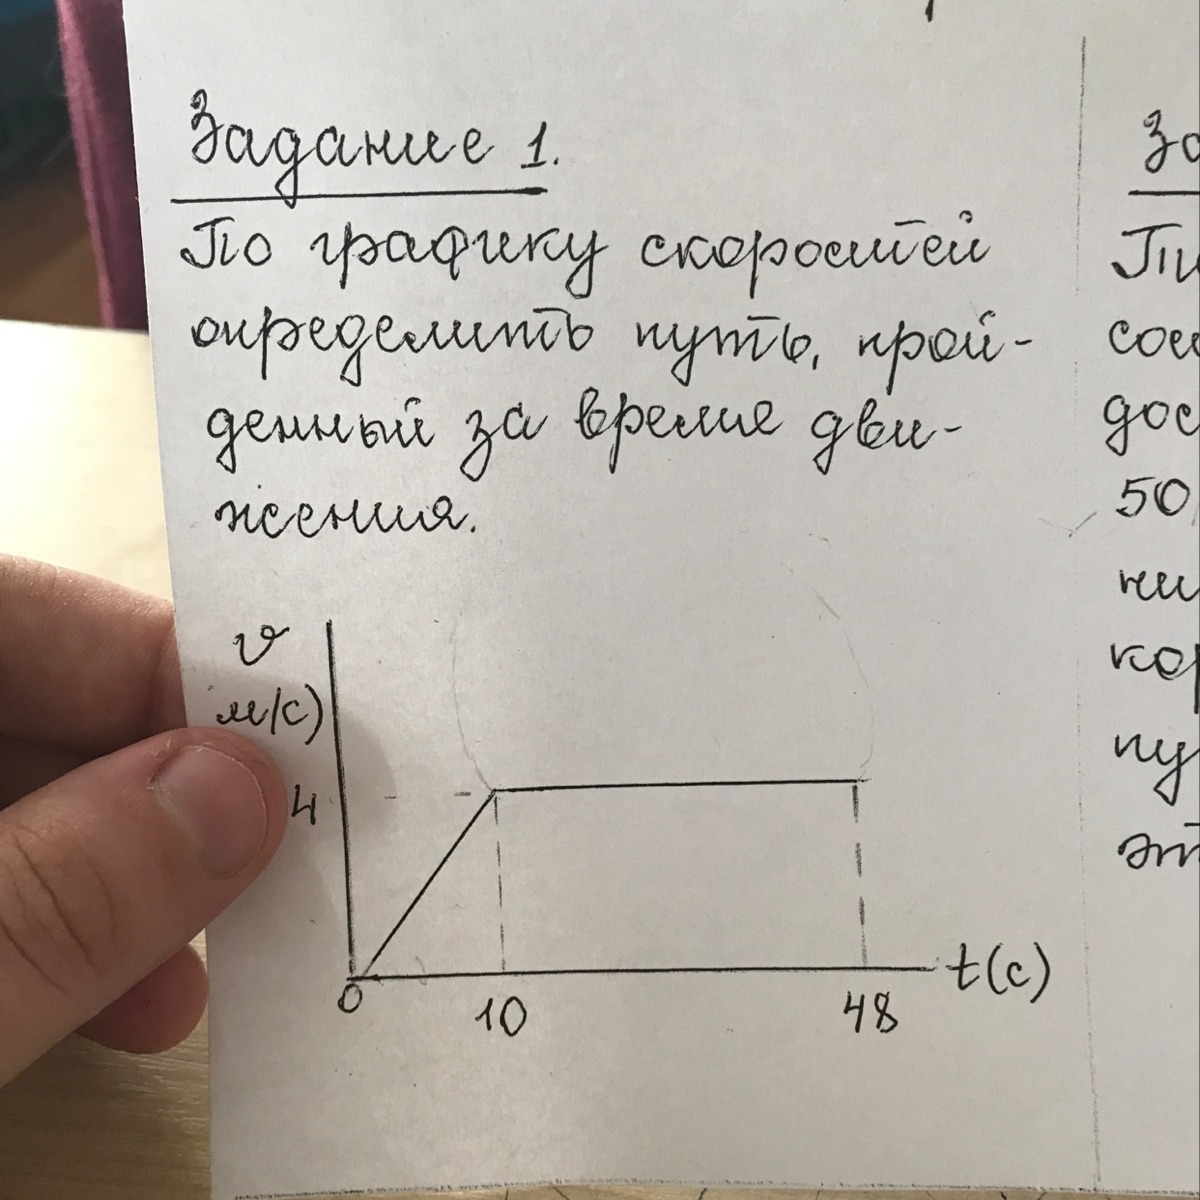 Задание 1.
По графику скоростей
определить путь, прой-
денный за время дви-
жения.
v
м/с)
4
0
10
48
t(с)
За
Пи
сои
дос
50
ни
кор
пу
эт